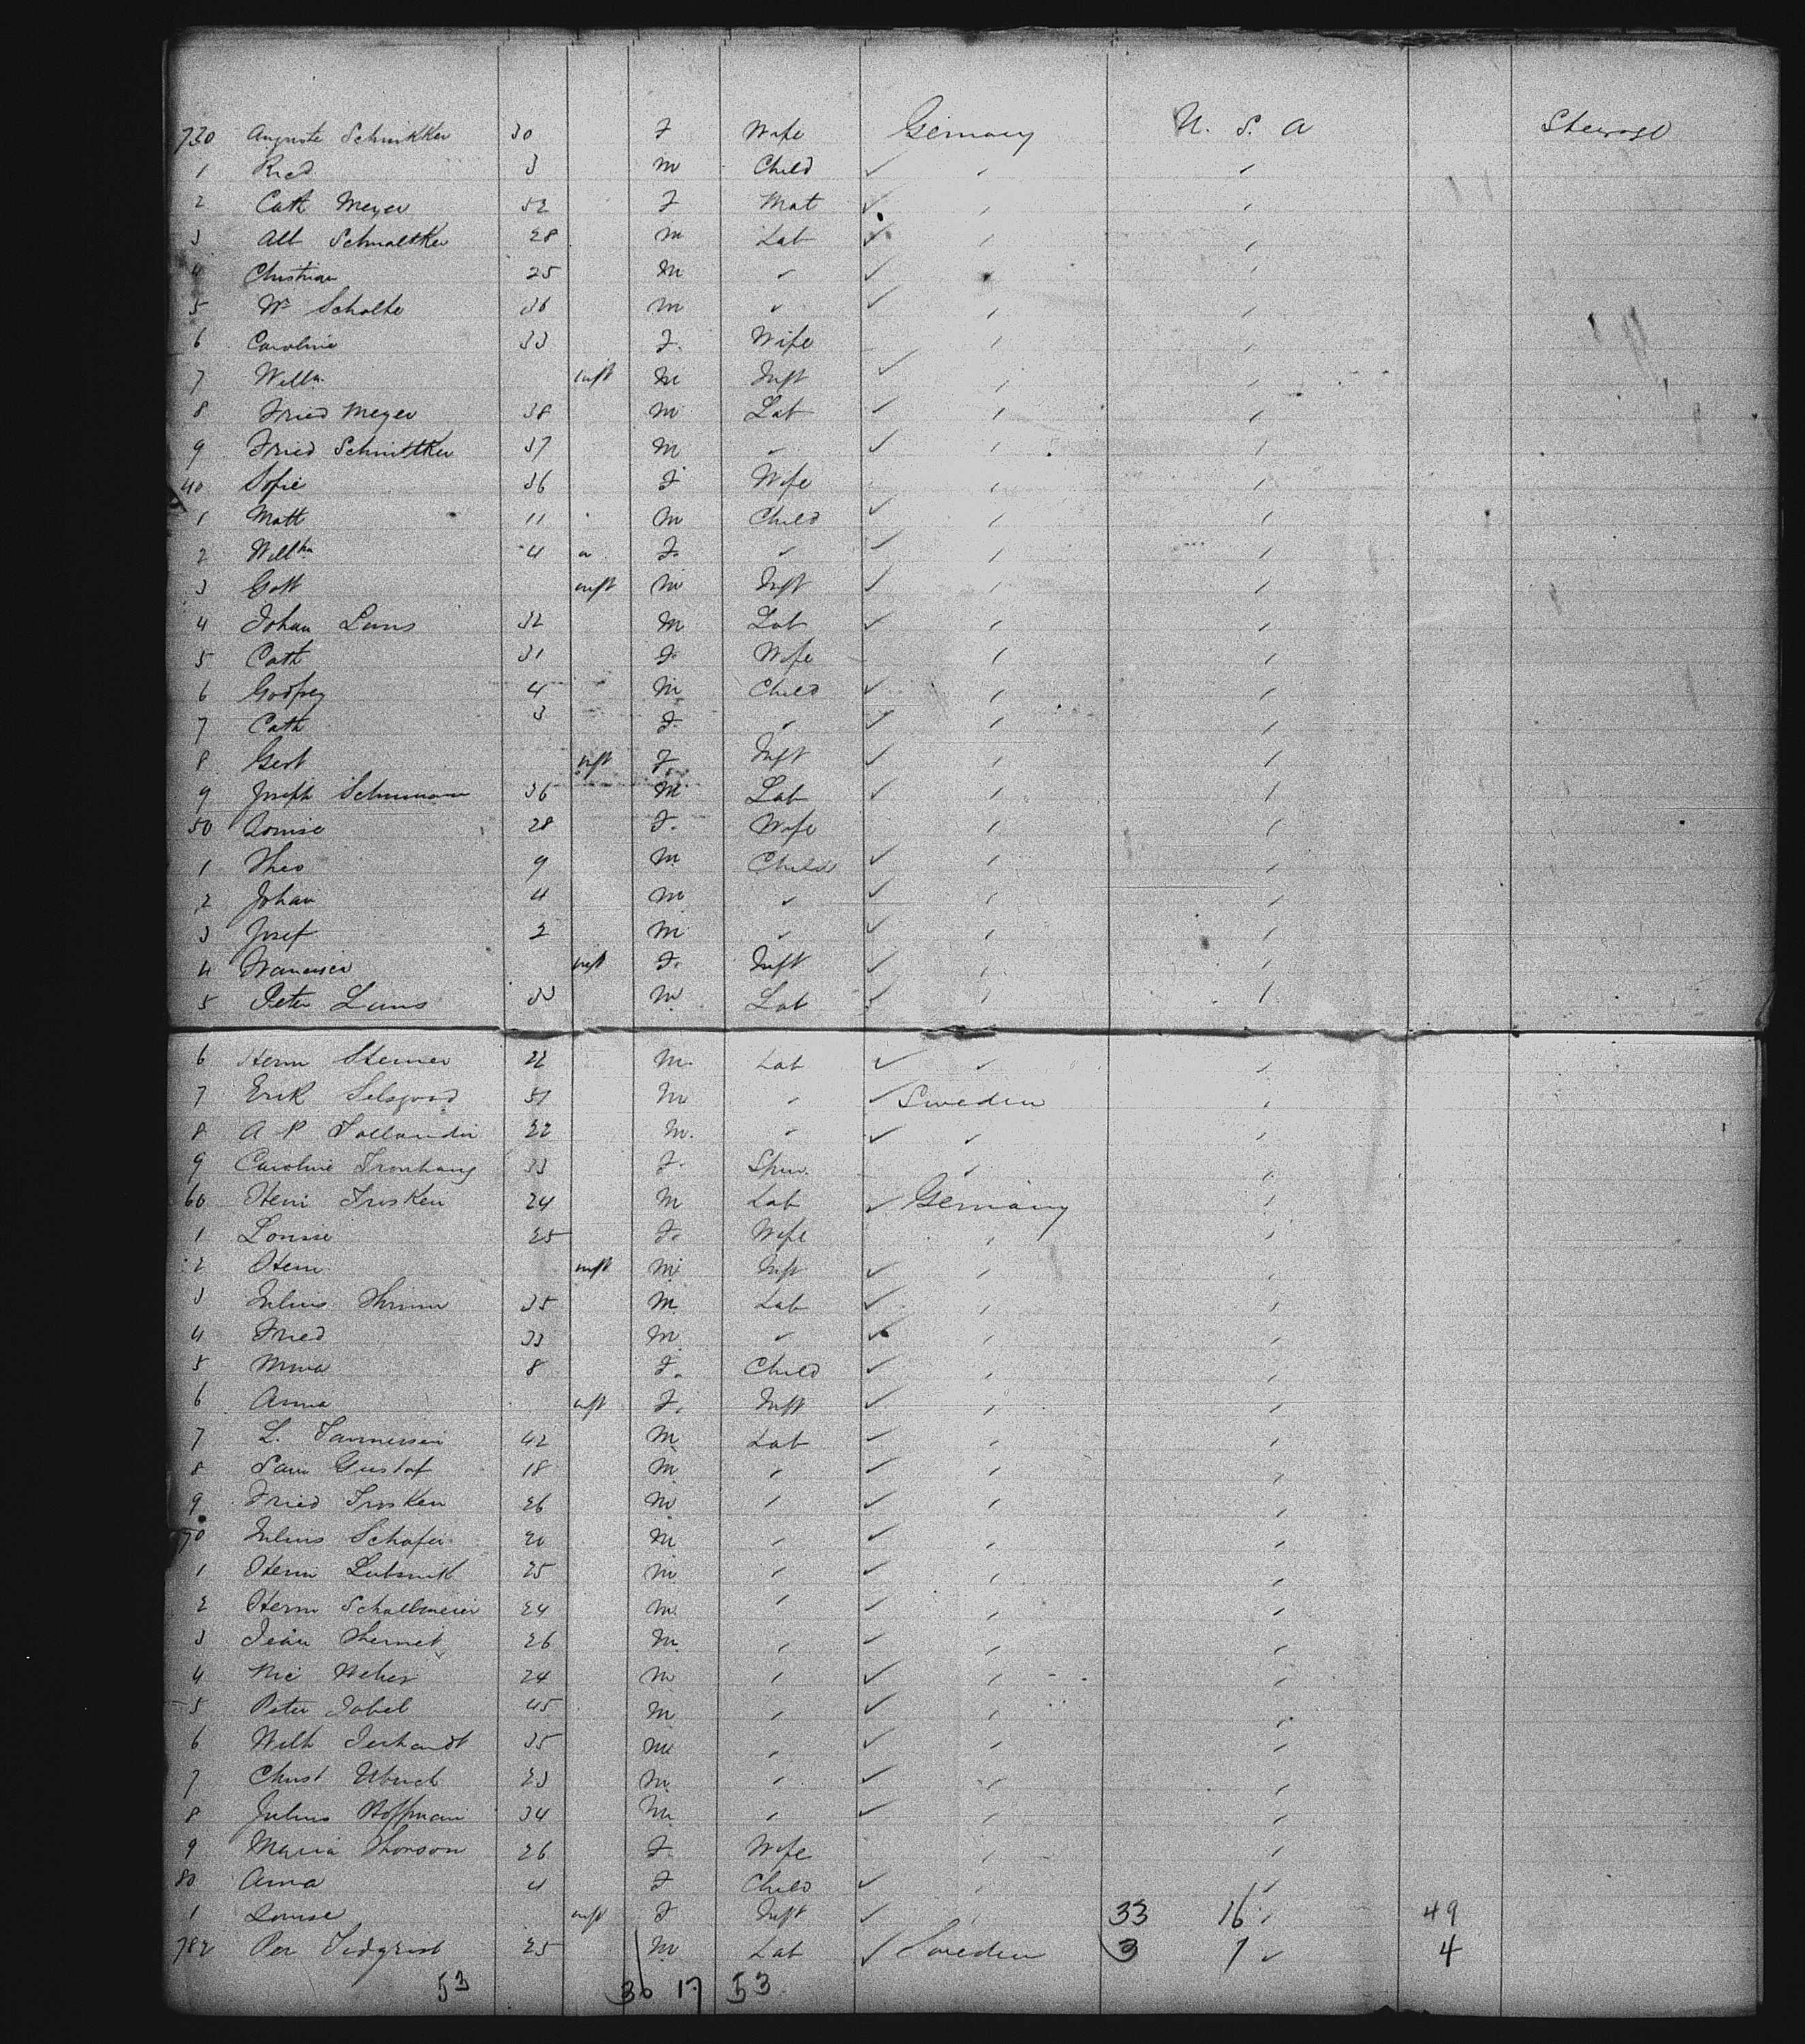 730 Auguste Schnikker 30 F Wife Germany U. S. A Steerage
1 Fried 3 m Child ✓ , ,
2 Cath Meyer 52 F Mat ✓ , ,
3 Alb Schnaltker 28 m Lab ✓ , ,
4 Christian 25 m ✓ ✓ , ,
5 Wm Scholte 36 m ✓ ✓ , ,
6 Caroline 33 F. Wife , ,
7 Willm inft m Inft ✓ , ,
8 Fried Meyer 38 m Lab ✓ , ,
9 Fried Schnittker 37 m ✓ ✓ , ,
40 Sofie 36 F Wife , ,
1 Matt 11 m Child ✓ , ,
2 Willm 4 F. ✓ ✓ , ,
3 Gott inft m Inft ✓ , ,
4 Johan Lans 32 m Lab ✓ , ,
5 Cath 31 F. Wife , ,
6 Godfrey 4 m Child ✓ , ,
7 Cath 3 F. ✓ ✓ , ,
8 Gert inft F. Inft ✓ , ,
9 Joseph Schumann 36 m Lab ✓ , ,
50 Louise 28 F. Wife , ,
1 Theo 9 m Child ✓ , ,
2 Johan 4 m ✓ ✓ , ,
3 Josef 2 m ✓ ✓ , ,
4 Francisca inft F. Inft ✓ , ,
5 Peter Lans 33 m Lab ✓ , ,
6 Herm Sterner 22 m. Lab ✓ ✓ ,
7 Erik 51 m , ✓ Sweden ,
8 A P 22 m. ✓ ✓ , ,
9 Caroline 33 F. Spin. , ,
60 Henri Frisken 24 m Lab ✓ Germany ,
1 Louise 25 F. Wife , ,
2 Herm inft m Inft ✓ , ,
3 Julius 35 m Lab ✓ , ,
4 Fried 33 m ✓ ✓ , ,
5 Mina 8 F. Child ✓ , ,
6 Anna inft F. Inft ✓ , ,
7 L. 42 m Lab ✓ , ,
8 Gustaf 18 m , ✓ , ,
9 Fried Frisken 26 m , ✓ , ,
70 Julius Schafer 20 m , ✓ , ,
1 Herm 25 m , ✓ , ,
2 Herm Schallmeier 24 m , ✓ , ,
3 Jean 26 m , ✓ , ,
4 Nic Weber 24 m , ✓ , ,
5 Peter 45 m , ✓ , ,
6 Wilh 35 m , ✓ , ,
7 Christ 23 m , ✓ , ,
8 Julius Hoffman 34 m , ✓ , ,
9 Maria Thorson 26 F. Wife , ,
80 Anna 4 F Child ✓ , ,
1 Louise inft F Inft ✓ , 33 16 , 49
782 Per 25 m Lab ✓ Sweden 3 1 ✓ 4
53 36 17 53